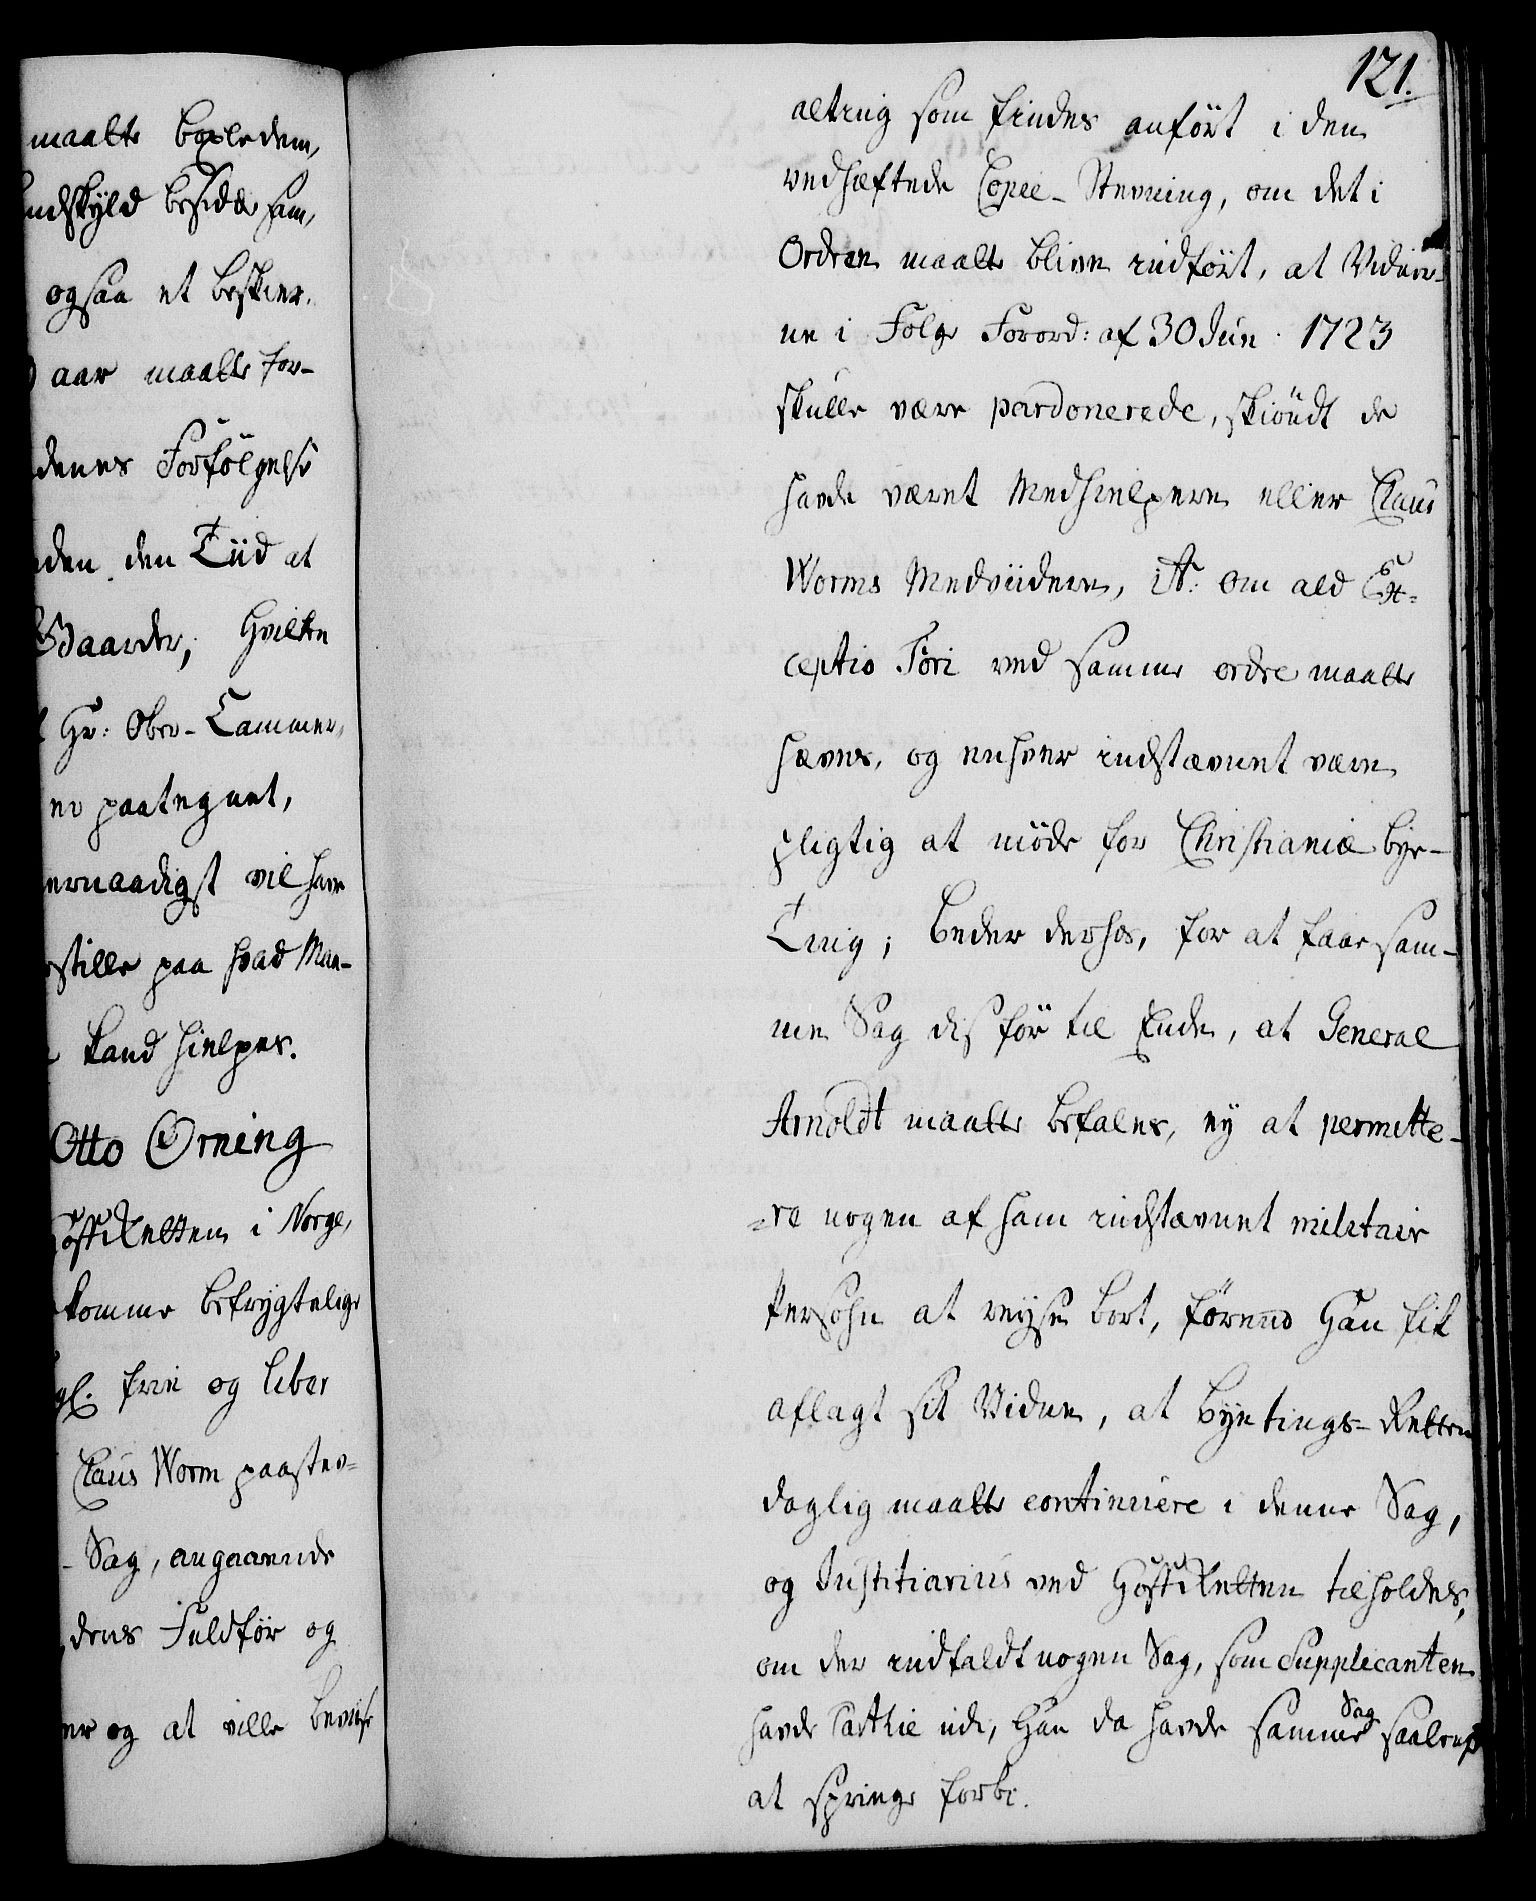 maatte bøxle dem,
ndskyld besidde sam,
ogsaa et beskier,
aar maatte for-
denes Forfölgelse
den den Tiid at
Gaarder; Hvilken
Hr: Ober-Cammer,
er paategnet,
ernaadigst vil have
stille paa hvad Maa-
kand hielpes.
Otto Örning
HoffRetten i Norge,
komme befrygtelige
gl. frie og liber
Claus Worm paastev-
- Sag, angaaende
dens Fuldför og
er og at ville beviise
121.
alting som findes anfört i den
vedhæftede Copie-Stevning, om det i
Ordren maatte blive indfört, at Vidner-
ne i Fölge Forord: af 30 Jun. 1723
skulle være pardonerede, skiöndt de
havde været Medhielpere eller Claus
Worms Medviidere, It: om ald Ex-
ceptio Fori ved samme ordre maatte
hæves, og enhver indstævnet være
pligtig at möde for Christianiæ bye-
Ting; beder derhos, for at faae sam-
me Sag disför til Ende, at General
Arnoldt maatte befales, ey at permitte-
=re nogen af ham indstævnet militair
Persohn at reyse bort, förend Han fik
aflagt sit Vidne, at Byetings-Retten
daglig maatte continuere i denne Sag,
og Justitiarius ved HoffRetten tilholdes,
om der indfaldt nogen Sag, som Supplicanten
havde Parthie udi, Han da havde samme Sag saalenge
at springe forbi.